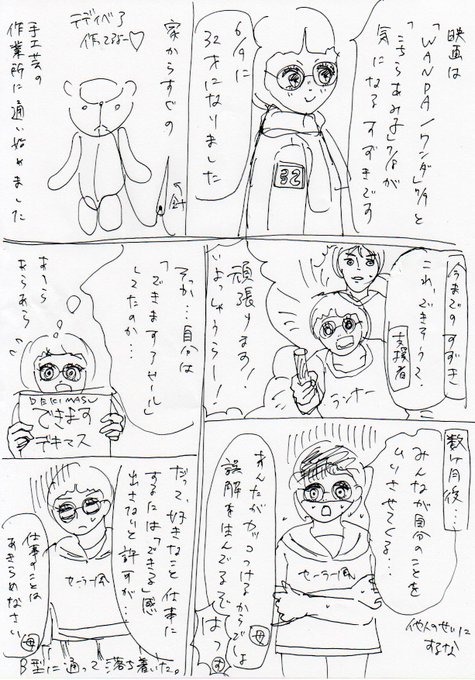 映画は
「WANDA/ワンダ」7/9と
「こちらあみ子」7/8が
気になるすずきです
6/9に
32才になりました
32
家からすぐの
テディベア
作ってるよー♡
手工芸の
作業所に通い始めました
←針
今までのすずき
これ、できそう?
支援者
頑張ります!
いよっしゃぁらー!
ランナー
そっか…自分は
「できますアピール」
してたのか
あららあらあら
DEKIMASU
できます
デキマス
数ヶ月後…
みんなが自分のことを
ムリさせてくる…
セーラー風
他人のせいに
するな
あんたがカッコつけるからでしょ
誤解を生んでるぞ
母
はっ
す
だって、好きなこと仕事に
するには「できる」感
出さないと許すが…
セーラー風
仕事のことは
あきらめなさい
母
B型に通って落ち着いた。